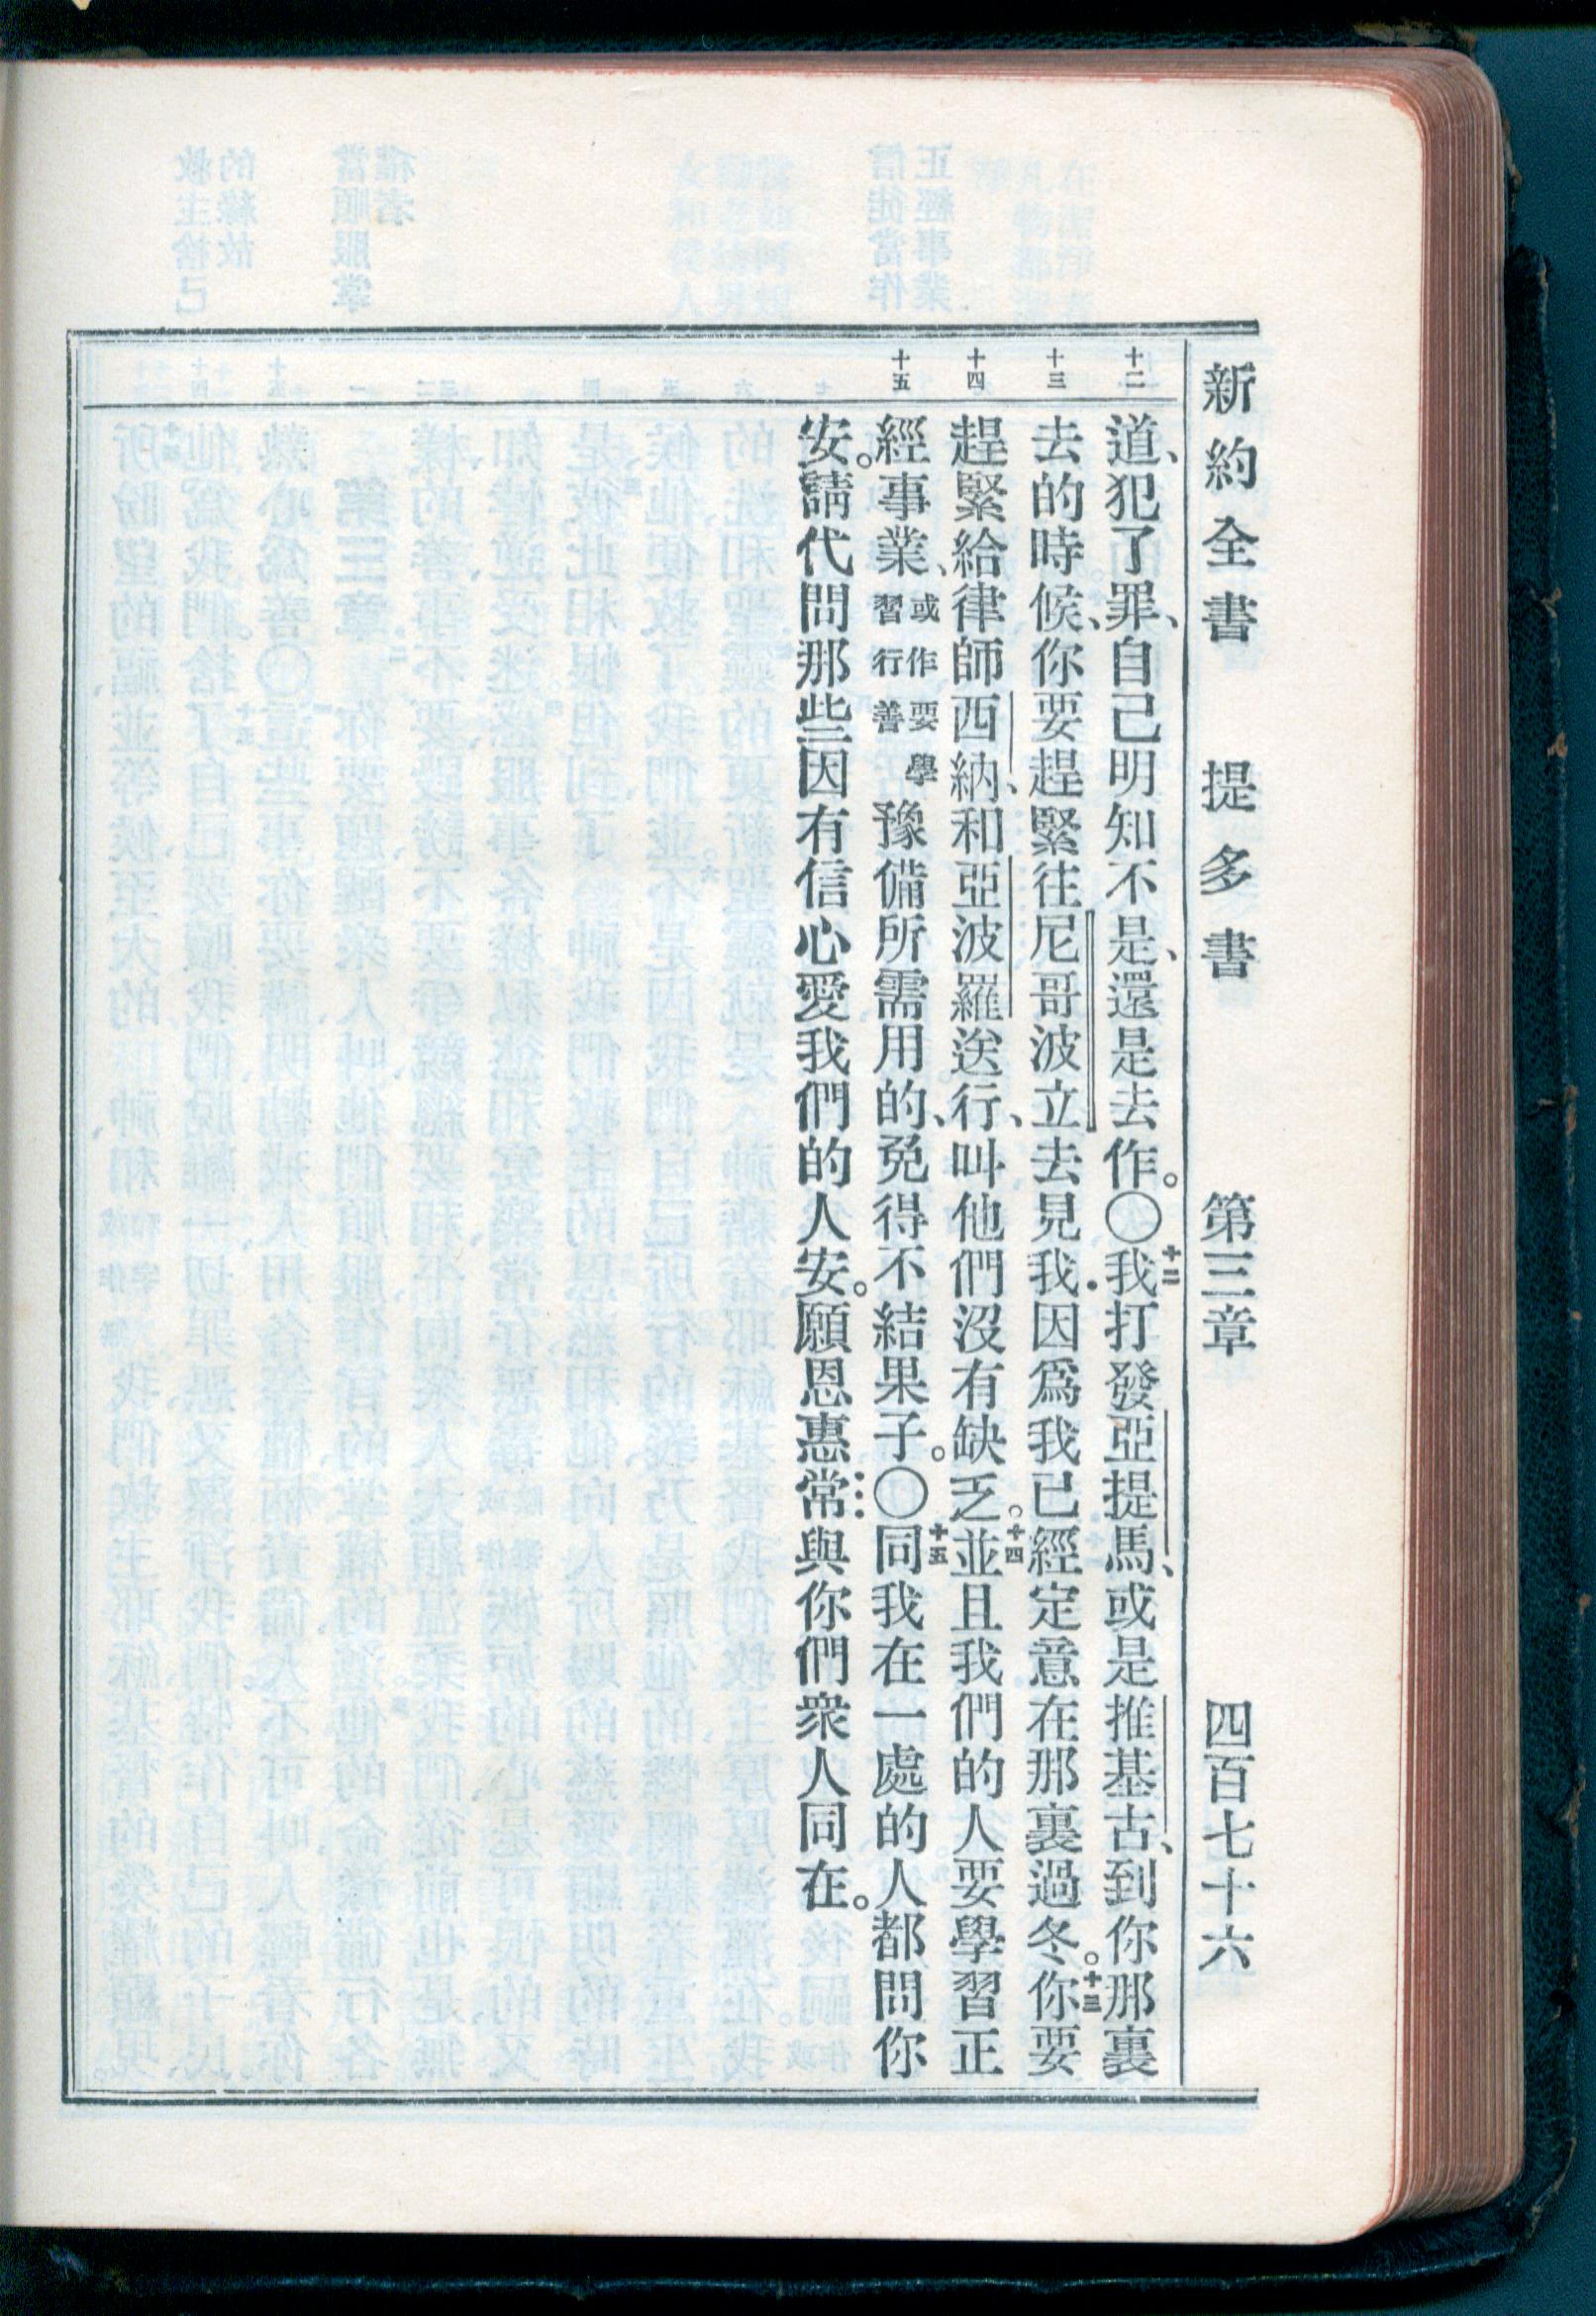 新約全書 提多書 第三章 四百七十六
十二
道、犯了罪、自己明知不是、還是去作。〇十二我打發亞提馬、或是推基古、到你那裏
十三
去的時候、你要趕緊往尼哥波立去見我．因爲我已經定意在那裏過冬。十三你要
十四
趕緊給律師西納、和亞波羅送行、叫他們沒有缺乏。十四並且我們的人要學習正
十五
經事業、或作要學習行善豫備所需用的、免得不結果子。〇十五同我在一處的人都問你
安。請代問那些因有信心愛我們的人安。願恩惠常與你們衆人同在。